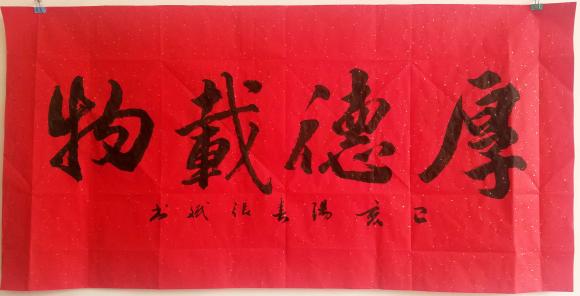 厚德載物
己亥陽春張斌书